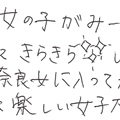 女の子がみー
てきらきらし
奈良女に入ってか
楽しい女子大